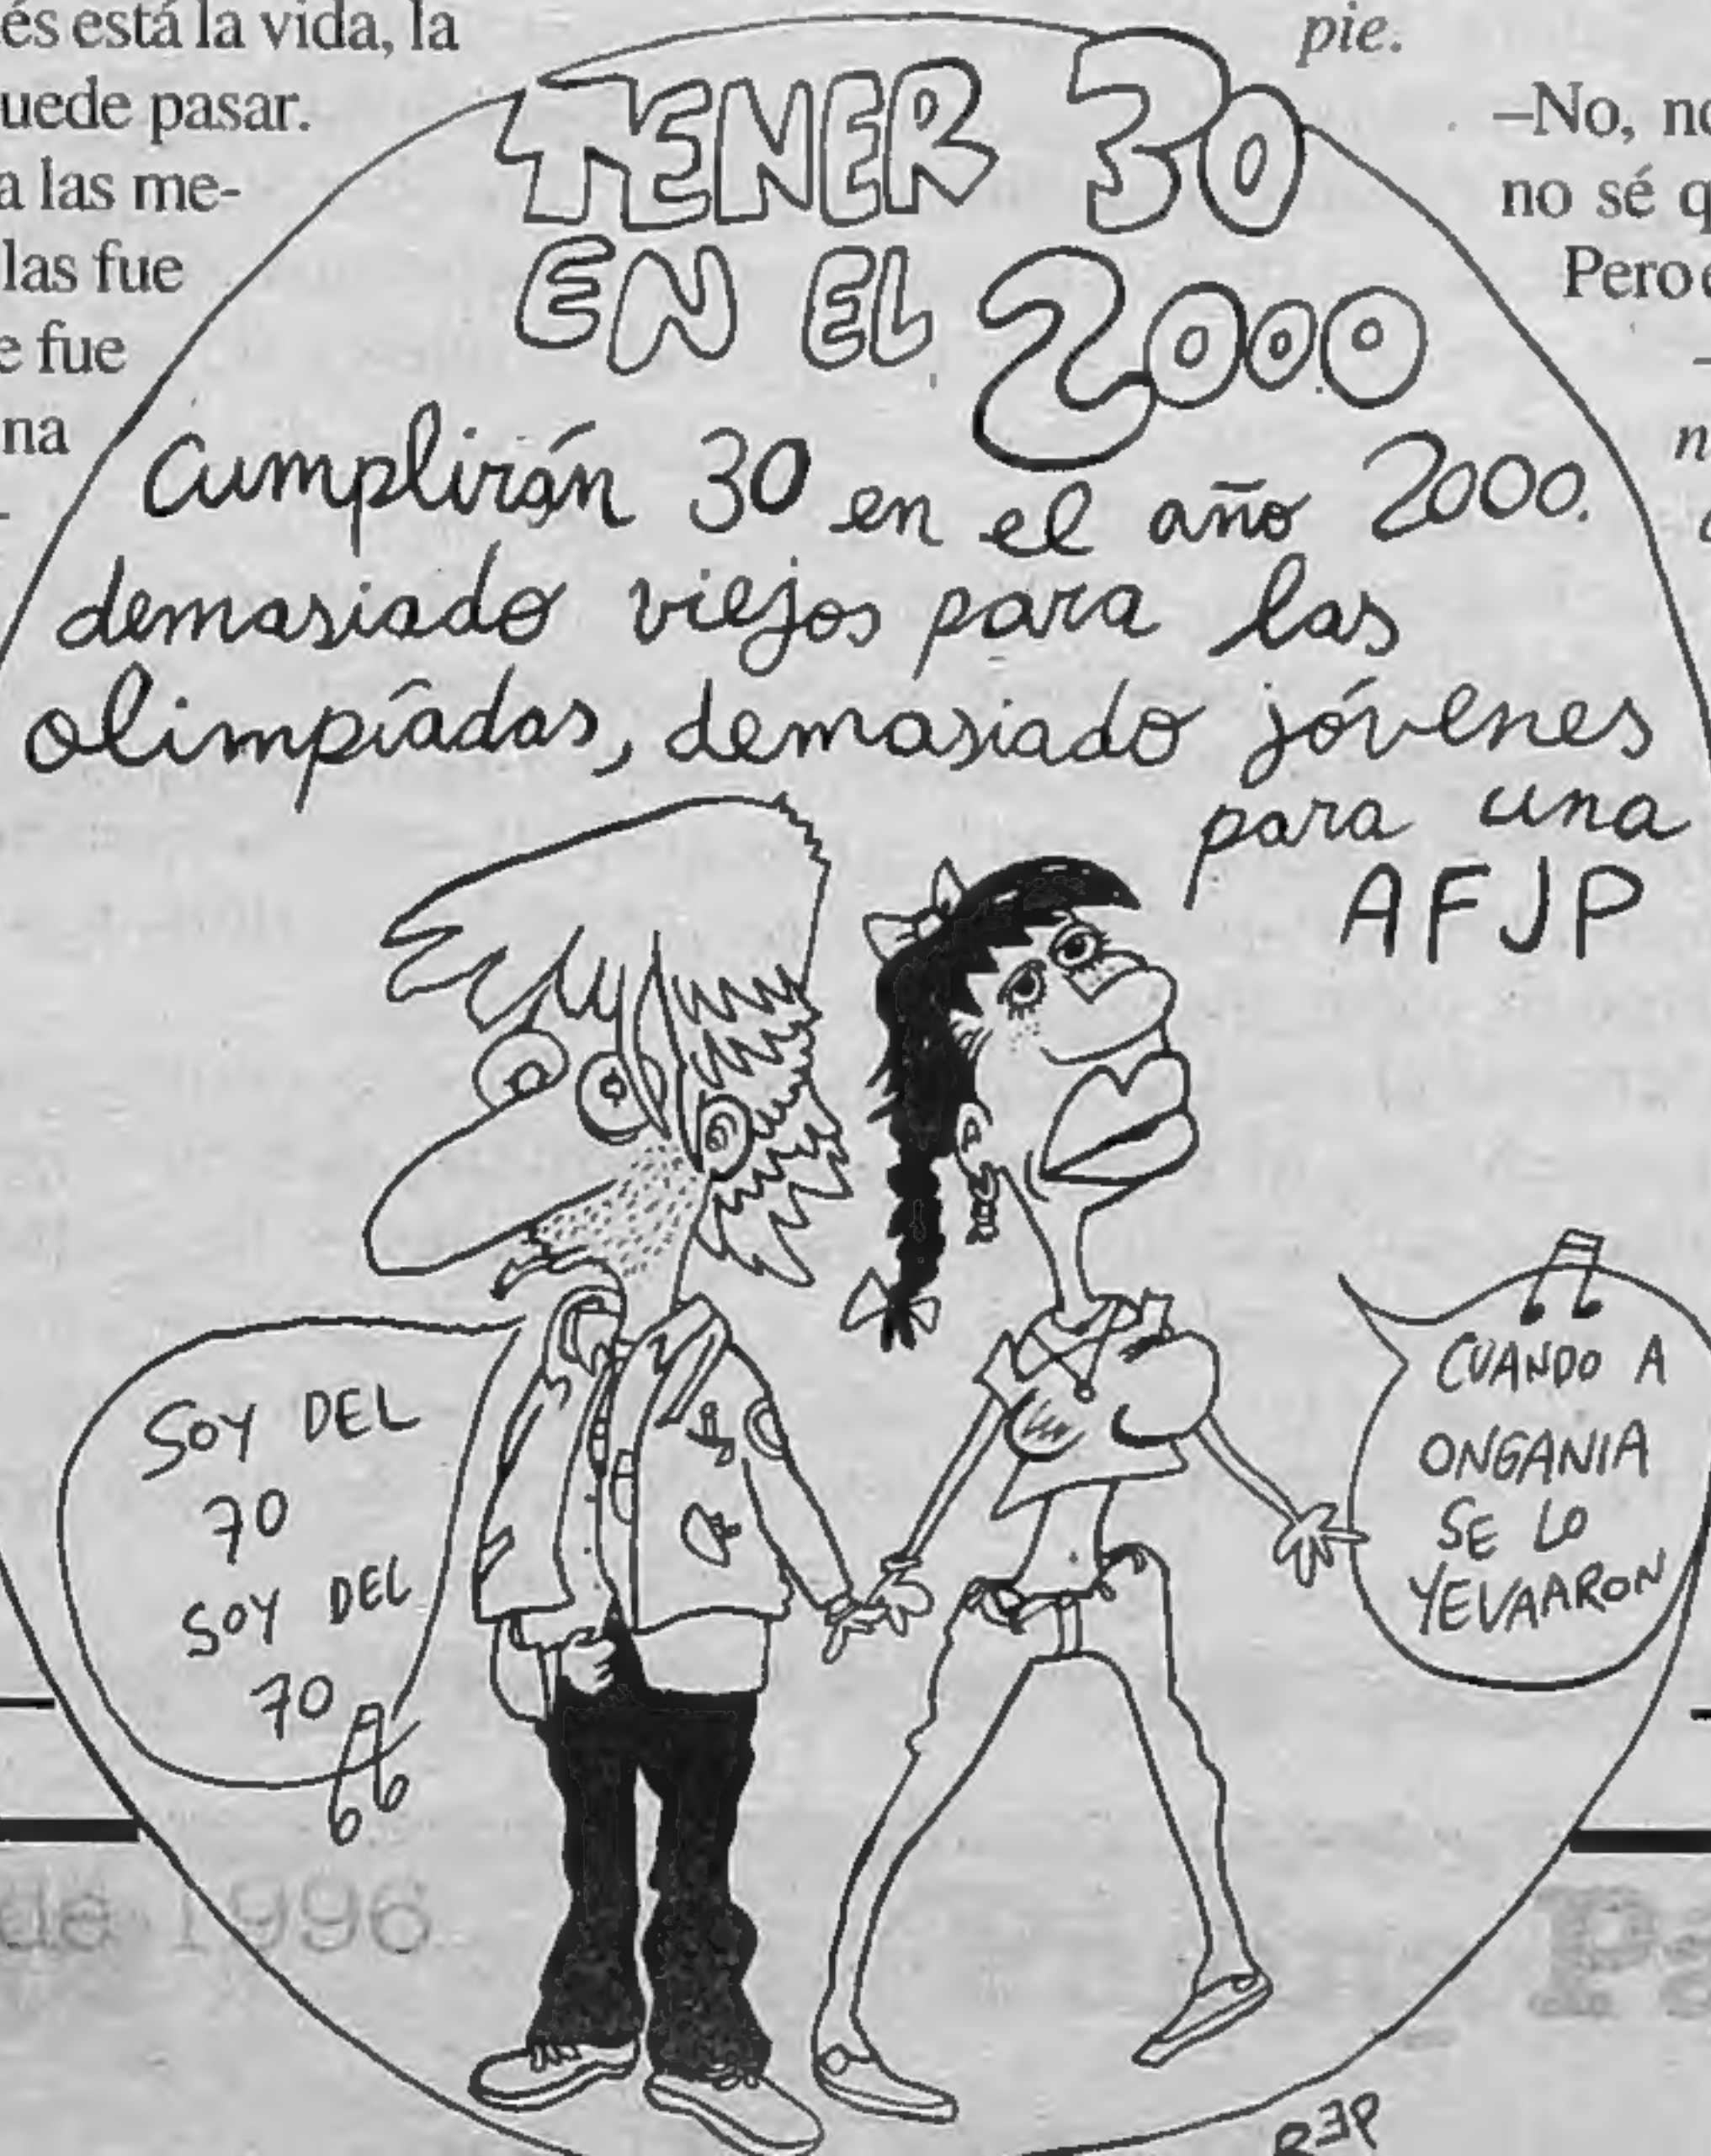 és está la vida, la
uede pasar.
a las me-
las fue
e fue
na
-
pie.
–No, no
no sé q
Pero e
–
n
TENER 30
EN EL 2000
Cumplirán 30 en el año 2000.
demasiado viejos para las
olimpíadas, demasiado jóvenes
para una
AFJP
SOY DEL
70
SOY DEL
70
CUANDO A
ONGANIA
SE LO
YEVAARON
de 1996
Pa
REP